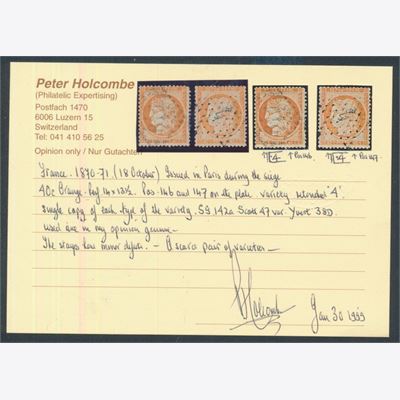 Peter Holcombe
(Philatelic Expertising)
Postfach 1470
6006 Luzern 15
Switzerland
Tel: 041 410 56 25
Opinion only / Nur Gutachten
4 ↑ Pos 146
4 ↑ Pos 147
France. 1870-71 (18 October) Issued in Paris during the siege
40c Orange. Perf 14 x 13½. Pos. 146 and 147 on the plate variety retouched '4'.
single copy of each type of the variety. SG 142a Scott 47 var. Yvert 38D.
used are in my opinion genuine —
The stamps have minor defects. — A scarce pair of varieties —
Holcombe
Jan 30 1999